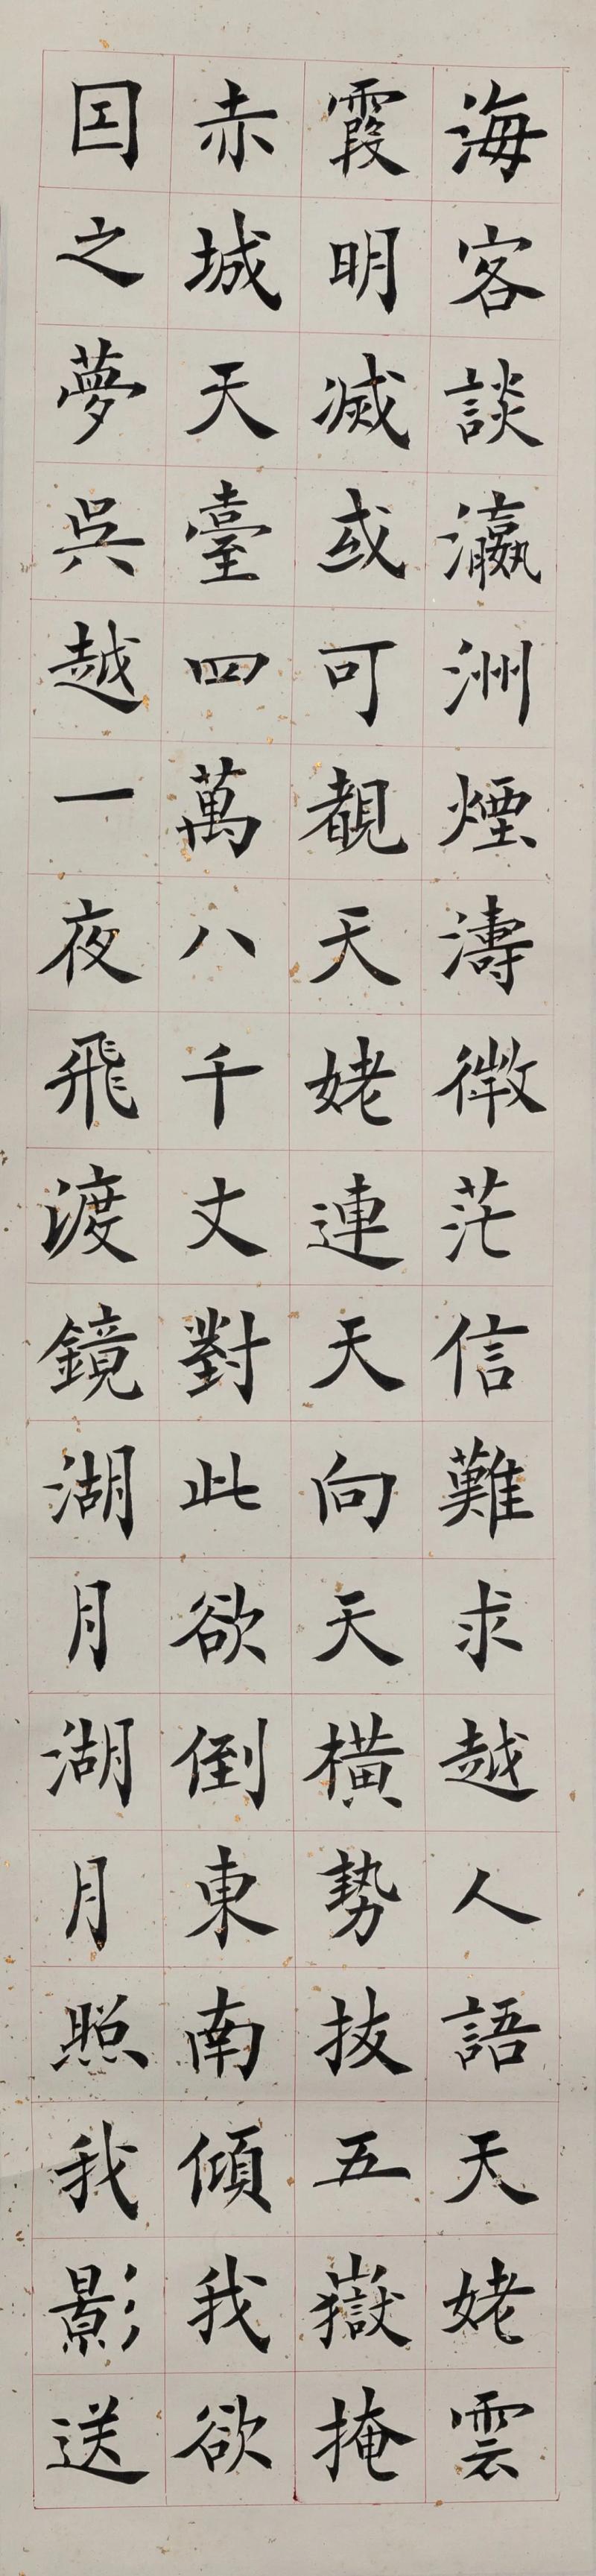 海客談瀛洲煙濤微茫信難求越人語天姥雲
霞明滅或可覩天姥連天向天橫勢拔五嶽掩
赤城天臺四萬八千丈對此欲倒東南傾我欲
因之夢吳越一夜飛渡鏡湖月湖月照我影送